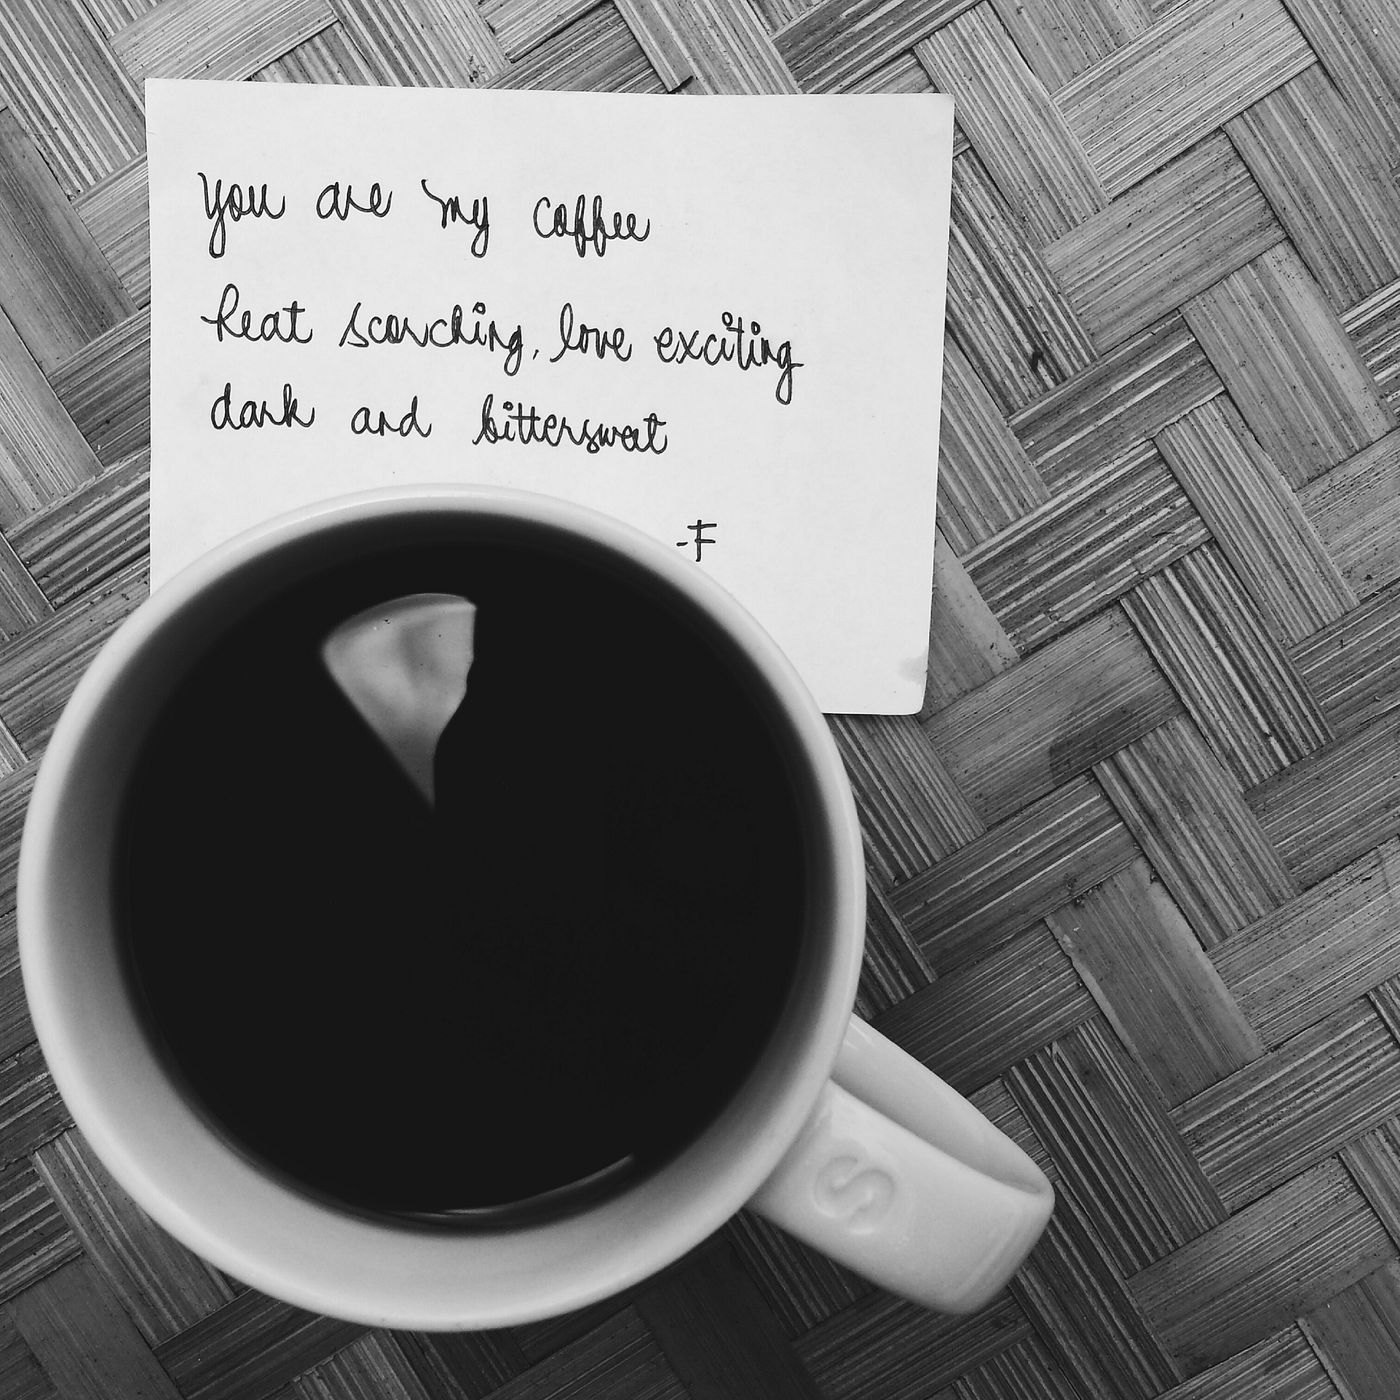 you are my coffee
heat scorching, love exciting
dark and bittersweet
-F
S